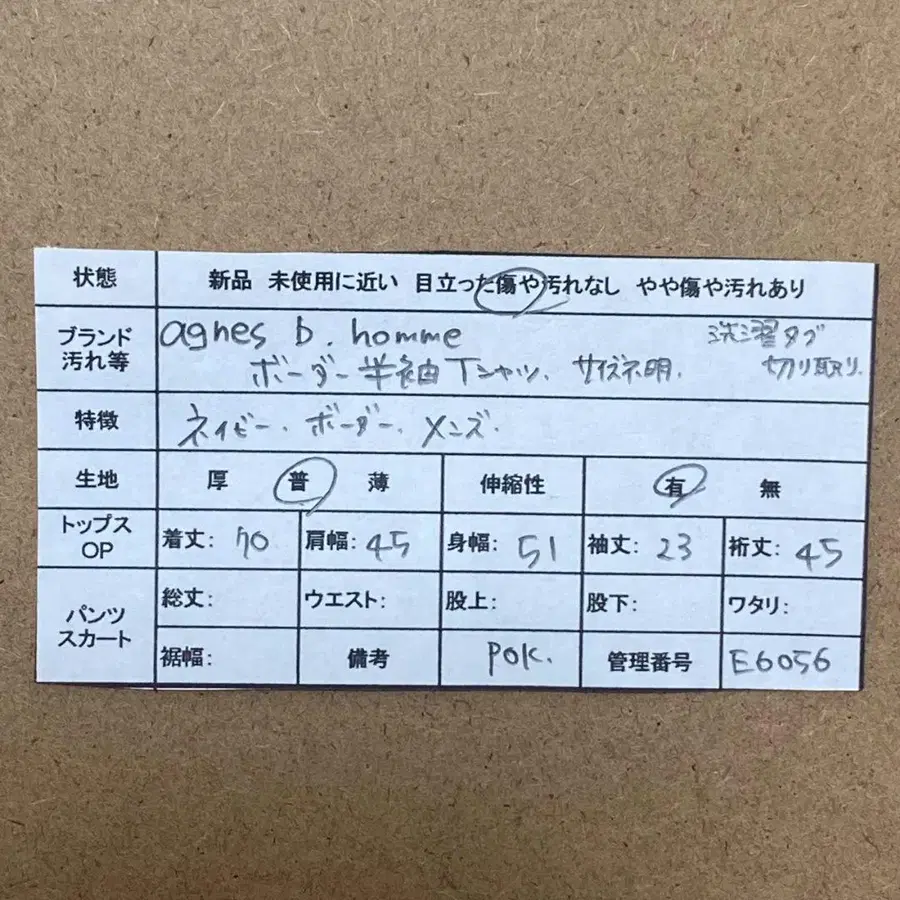 状態 新品 未使用に近い 目立った傷や汚れなし やや傷や汚れあり
ブランド 汚れ等 agnes b. homme 洗濯タブ
ボーダー半袖Tシャツ. サイズ不明. 切り取り.
特徴 ネイビー. ボーダー. メンズ.
生地 厚 普 薄 伸縮性 有 無
トップス OP 着丈: 70 肩幅: 45 身幅: 51 袖丈: 23 裄丈: 45
パンツ スカート 総丈: ウエスト: 股上: 股下: ワタリ:
裾幅: 備考 POK. 管理番号 E6056